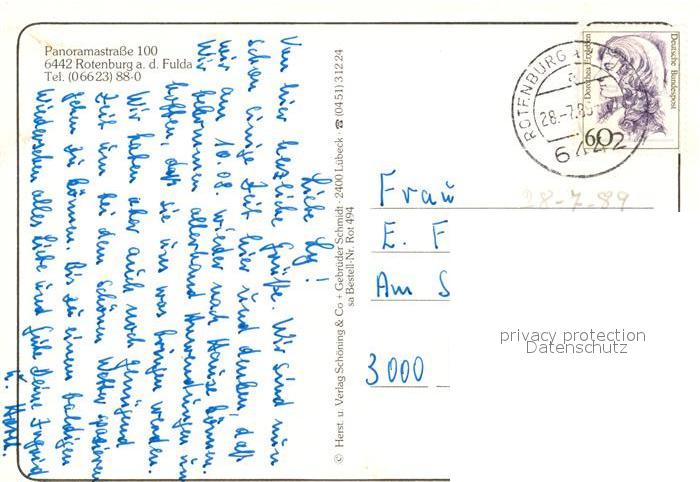 Panoramastraße 100
6442 Rotenburg a. d. Fulda
Tel. (06623) 88-0
Liebe !
Von hier herzliche Grüße. Wir sind nun
schon einige Zeit hier und denken, daß
wir am 10.08. wieder nach Hause können.
Wir bekommen allerhand Anwendungen u.
hoffen, daß sie uns was bringen werden.
Wir haben aber auch noch genügend
Zeit um bei dem schönen Wetter spazieren
gehen zu können. Bis zu einem baldigen
Wiedersehen alles liebe und gute Deine Ingrid
u. Horst.
© Herst. u. Verlag Schöning & Co + Gebrüder Schmidt · 2400 Lübeck · ☎ (0451) 31224
sa Bestell-Nr. Rot 494
ROTENBURG
a
28.-7.89
6442
Dorothea Erxleben
Deutsche Bundespost
60
28-7-89
Frau
E. F
Am S
3000
privacy protection
Datenschutz